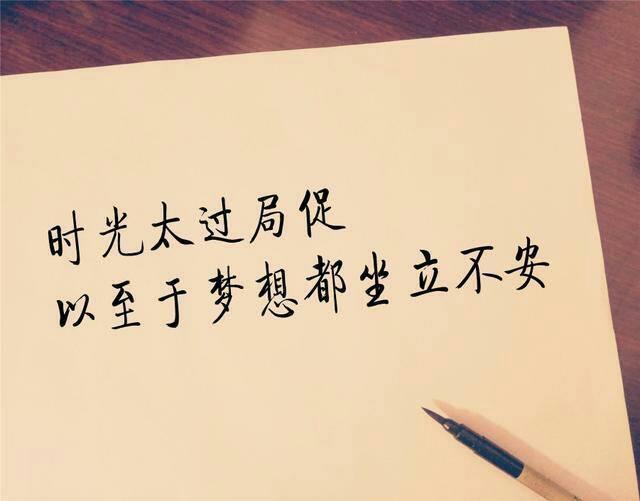 时光太过局促
以至于梦想都坐立不安